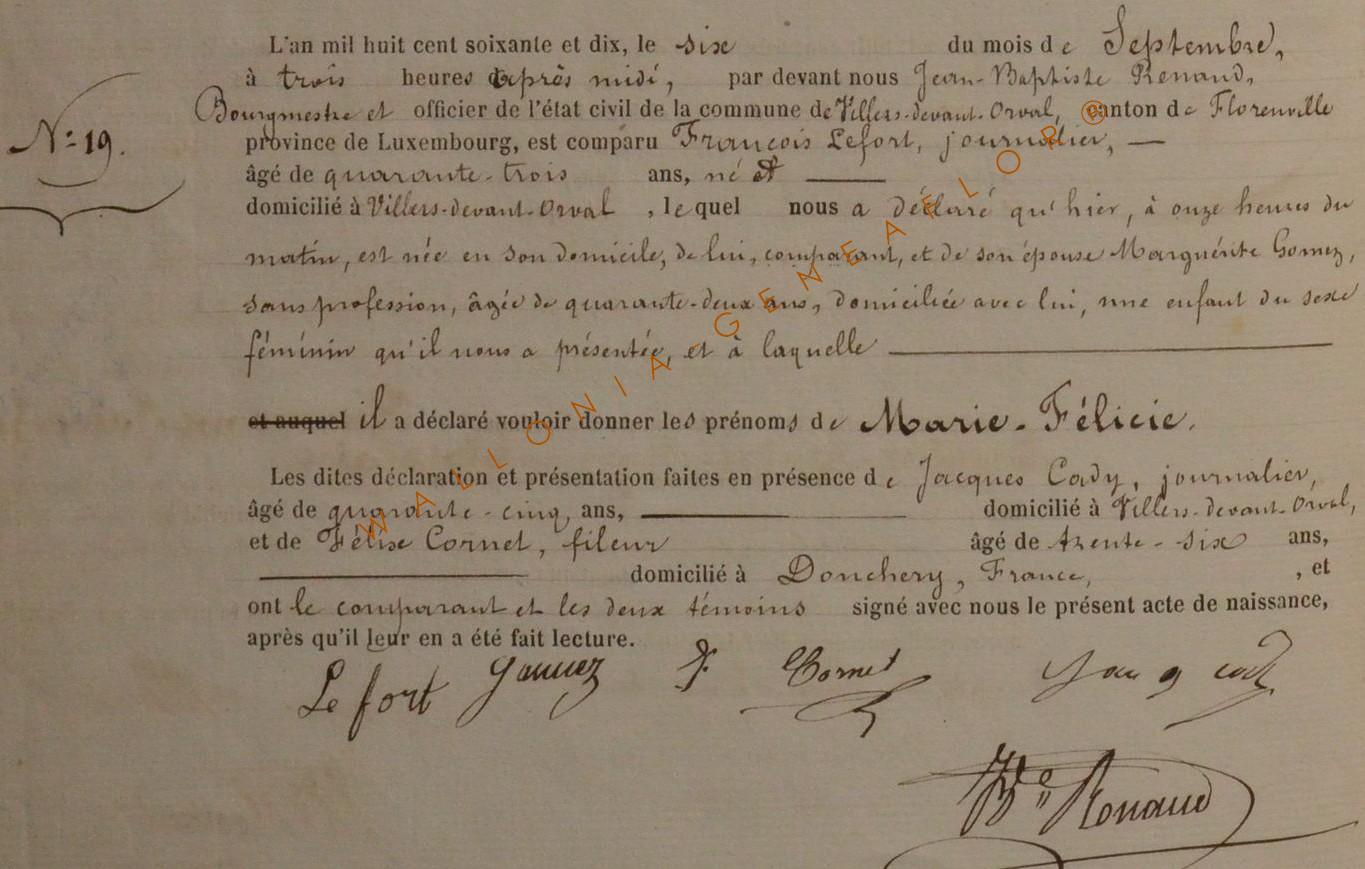 L'an mil huit cent soixante et dix, le six du mois de Septembre,
à trois heures après midi, par devant nous Jean-Baptiste Renaud,
Bourgmestre et officier de l'état civil de la commune de Villers-devant-Orval, canton de Florenville
N° 19.
province de Luxembourg, est comparu François Lefort, journalier,
âgé de quarante-trois ans, né
domicilié à Villers-devant-Orval, lequel nous a déclaré qu'hier, à onze heures du
matin, est née en son domicile, de lui, comparant, et de son épouse Marguérite Gomez,
sans profession, âgée de quarante-deux ans, domiciliée avec lui, une enfant du sexe
féminin qu'il nous a présentée, et à laquelle
et auquel il a déclaré vouloir donner les prénoms de Marie-Félicie.
Les dites déclaration et présentation faites en présence de Jacques Cady, journalier,
âgé de quarante-cinq ans, domicilié à Villers-devant-Orval,
et de Félix Cornet, fileur âgé de trente-six ans,
domicilié à Donchery, France, , et
ont le comparant et les deux témoins signé avec nous le présent acte de naissance,
après qu'il leur en a été fait lecture.
Lefort Cornet
Renaud
WALLONIA-GENEAFLOR®